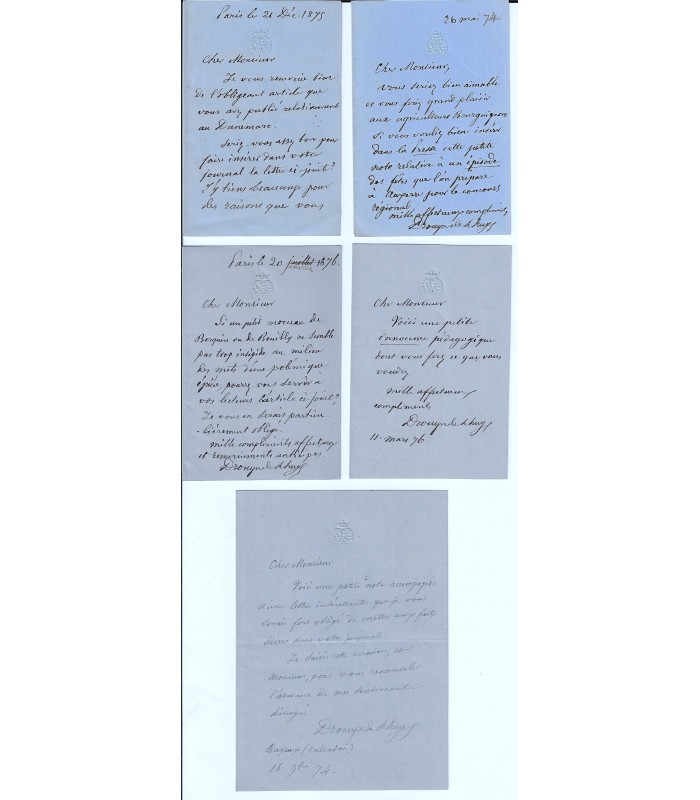 Paris le 21 Déc. 1875
Cher Monsieur
Je vous remercie bien
de l'obligeant article que
vous avez publié relativement
au Danemarc.
Seriez-vous assez bon pour
faire insérer dans votre
journal la lettre ci joint?
J'y tiens beaucoup pour
des raisons que vous
26 mai 74
Cher Monsieur,
Vous seriez bien aimable
et vous feriez grand plaisir
aux agriculteurs Bourguignons
si vous vouliez bien insérer
dans la Presse cette petite
note relative à un épisode
des fêtes que l'on prépare
à Auxerre pour le concours
régional.
mille affectueux compliments
Drouyn de Lhuys
Paris le 20 juillet 1876.
janvier
Cher Monsieur
Si un petit morceau de
Berquin ou de Bouilly ne semble
pas trop insipide au milieu
des mets d'une polémique
épicée, pourrez vous servir à
vos lecteurs l'article ci joint?
Je vous en serais particu
-lièrement obligé.
mille compliments affectueux
et remerciements anticipés.
Drouyn de Lhuys
Cher Monsieur
Voici une petite
innocence pédagogique
dont vous ferez ce que vous
voudrez
mille affectueux
compliments
Drouyn de Lhuys
11. mars 76
Cher Monsieur
Voici une petite note accompagnée
d'une lettre intéressante que je vous
serais fort obligé de mettre
dans votre journal.
Je saisis cette occasion, cher
Monsieur, pour vous renouveler
l'assurance de mes sentiments
distingués.
Drouyn de Lhuys
(Calvados)
16 9bre 74.